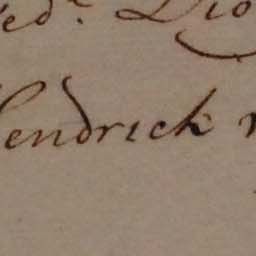 ed. Dio
Hendrick